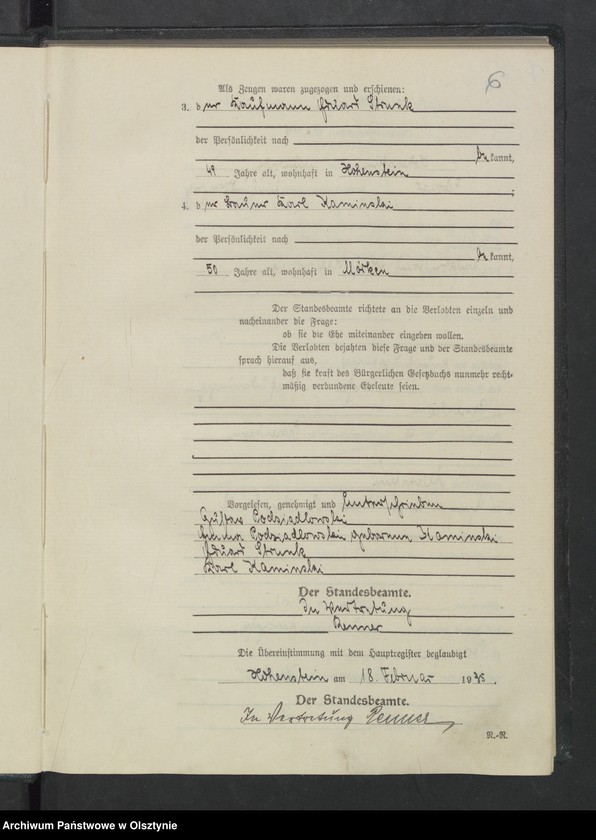 6
Als Zeugen waren zugezogen und erschienen:
3. der Kaufmann Eduard Strunk
der Persönlichkeit nach
bekannt,
49 Jahre alt, wohnhaft in Hohenstein
;
4. der Bauer Karl Kaminski
der Persönlichkeit nach
bekannt,
50 Jahre alt, wohnhaft in Mörken
Der Standesbeamte richtete an die Verlobten einzeln und
nacheinander die Frage:
ob sie die Ehe miteinander eingehen wollen.
Die Verlobten bejahten diese Frage und der Standesbeamte
sprach hierauf aus,
daß sie kraft des Bürgerlichen Gesetzbuchs nunmehr recht-
mäßig verbundene Eheleute seien.
Vorgelesen, genehmigt und unterschrieben
Gustav Podzadlowski
Podzadlowski geborene Kaminski
Eduard Strunk
Karl Kaminski
Der Standesbeamte.
In Vertretung
Renner
Die Übereinstimmung mit dem Hauptregister beglaubigt
Hohenstein am 18. Februar 19
Der Standesbeamte.
In Vertretung Renner
R.-R.
Archiwum Państwowe w Olsztynie